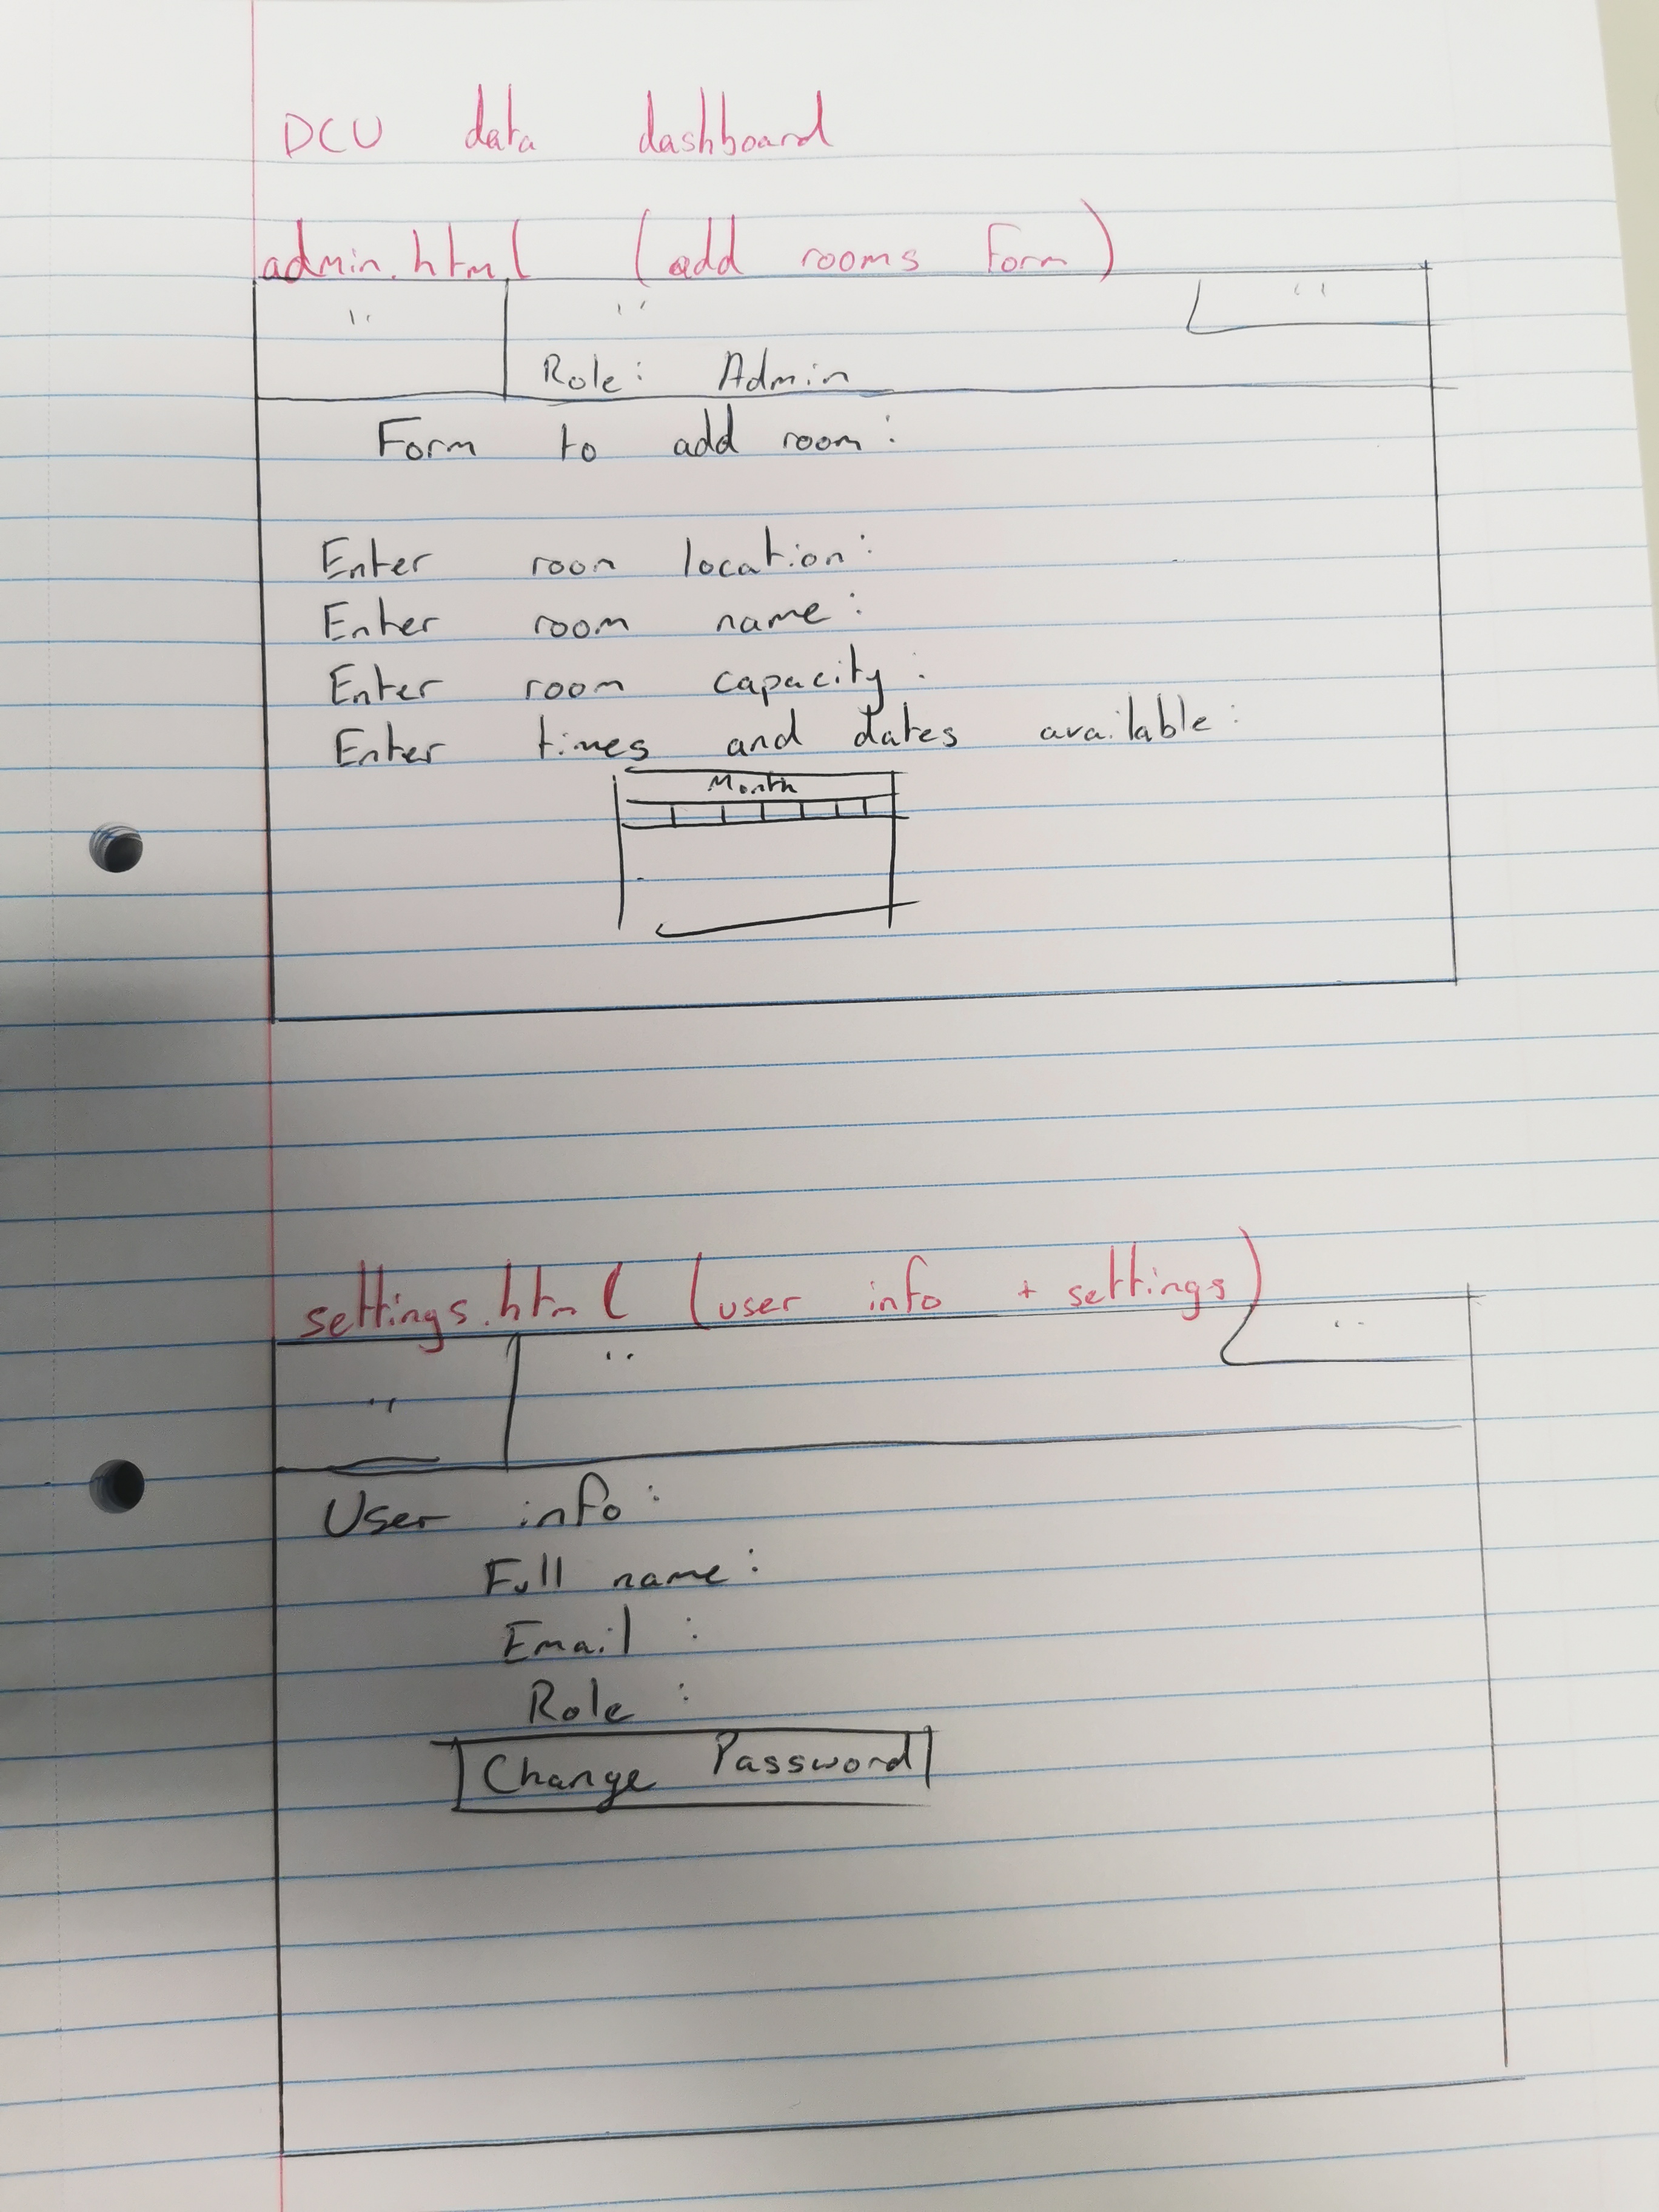 DCU data dashboard
admin.html (add rooms form)
" " "
Role: Admin
Form to add room:
Enter room location:
Enter room name:
Enter room capacity:
Enter times and dates available:
Month
settings.html (user info + settings)
" " "
User info:
Full name:
Email :
Role :
Change Password